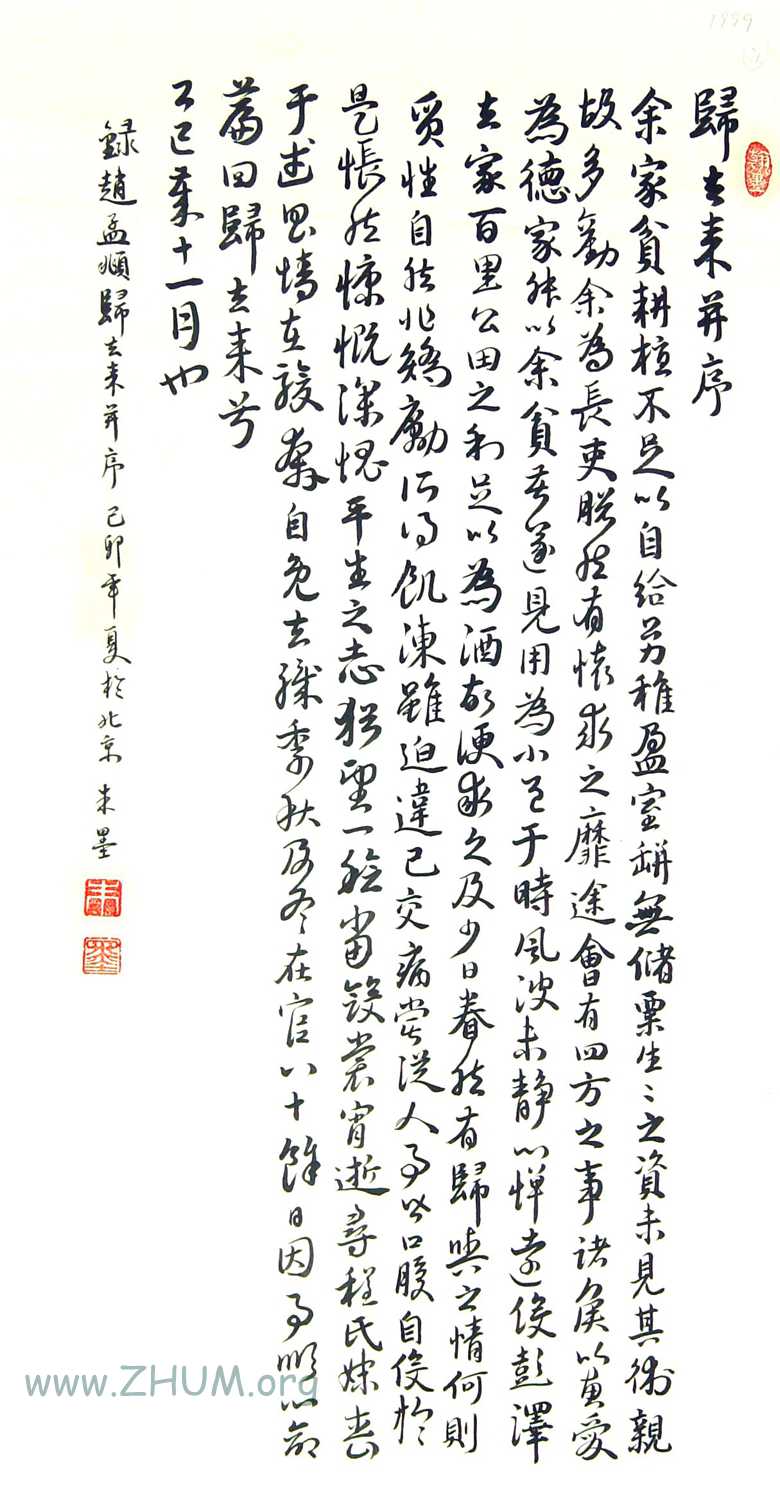 1999
歸去来并序
余家貧耕植不足以自給幼稚盈室缾無儲粟生〻之資未見其術親
故多勸余為長吏脱然有懐求之靡途會有四方之事諸侯以惠愛
為徳家叔以余貧苦遂見用為小邑于時風波未静心惮遠役彭澤
去家百里公田之利足以為酒故便求之及少日眷然有歸與之情何則
質性自然非矯勵所得飢凍雖迫違己交病嘗従人事皆口腹自役於
是悵然慷慨深愧平生之志猶望一稔當斂裳宵逝尋程氏妹喪
于武昌情在駿奔自免去職季秋及冬在官八十餘日因事順心命
篇曰歸去来兮
乙巳歳十一月也
録趙孟頫歸去来并序 己卯年夏於北京 朱墨
翰墨
朱
墨
www.ZHUM.org